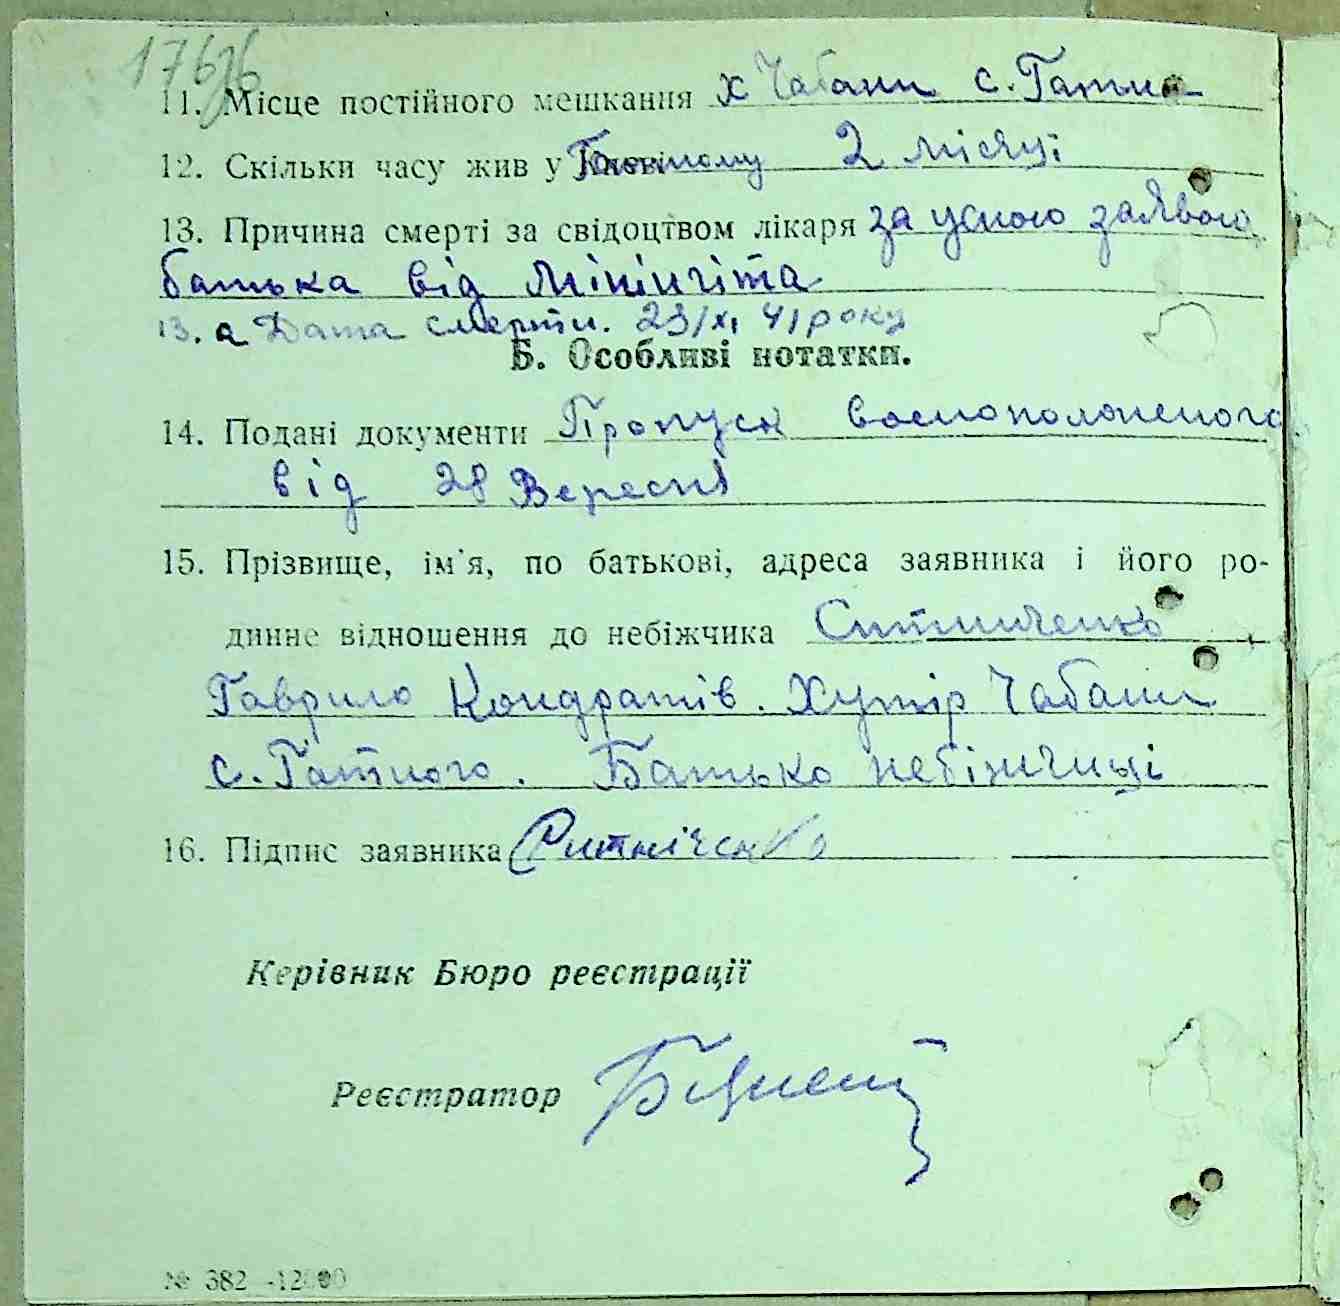 176
11. Місце постійного мешкання х Чабани с. Гатне
12. Скільки часу жив у Гатному 2 місяці
13. Причина смерті за свідоцтвом лікаря за усною заявою
батька від мінінгіта
13. а Дата смерти. 23/XI 41 року
Б. Особливі нотатки.
14. Подані документи Пропуск военополоненого
від 28 Вересня
15. Прізвище, ім'я, по батькові, адреса заявника і його ро-
динне відношення до небіжчика Ситниченко
Гаврило Кондратів. Хутір Чабани
с. Гатного. Батько небіжчиці
16. Підпис заявника Ситніченко
Керівник Бюро реєстрації
Реєстратор
№ 382 -12000